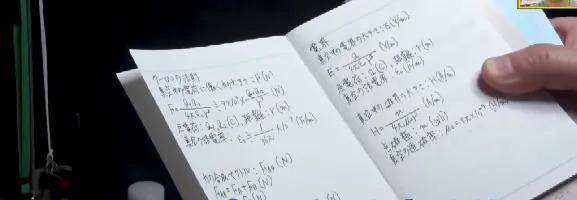 クーロンの法則
真空中の電荷に働く力の大きさ：F(N)
F=Q₁Q₂/4πε₀r²≒9×10⁹×Q₁Q₂/r² (N)
点電荷：Q₁,Q₂(C), 距離：r(m)
真空の誘電率：ε₀≒1/36π×10⁻⁹(F/m)
力の合成ベクトル：F_AB(N)
F_AB=F_A+F_B(N)
電界
真空中の電界の大きさ：E(V/m)
E=Q/4πε₀r² (V/m)
点電荷：Q(C), 距離：r(m)
真空の誘電率
真空中の磁界の大きさ：H(A/m)
H=m/4πμ₀r² (A/m)
点磁極：m(Wb)
真空の透磁率：μ₀=4π×10⁻⁷(H/m)